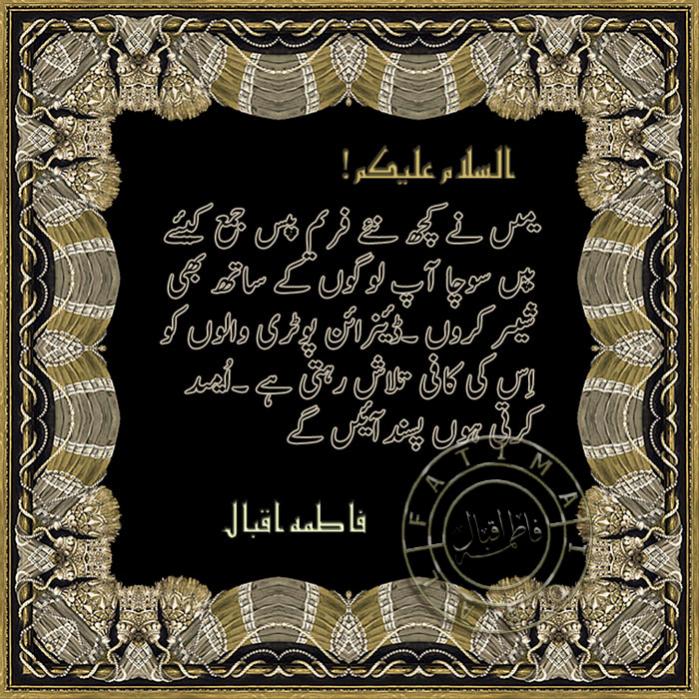 السلام علیکم!
میں نے کچھ نئے فریم پیس جمع کیئے
ہیں سوچا آپ لوگوں کے ساتھ بھی
شیئر کروں ۔ڈیئزائن پوٹری والوں کو
اِس کی کافی تلاش رہتی ہے ۔اُمید
کرتی ہوں پسند آئیں گے
فاطمہ اقبال
FATIMA
فاطمہ اقبال